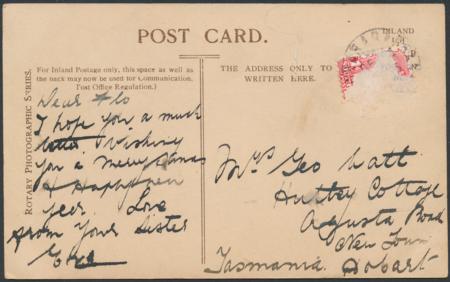 POST CARD.
For Inland Postage only, this space as well as
the back may now be used for Communication.
Post Office Regulation.)
THE ADDRESS ONLY TO
WRITTEN HERE.
INLAND
ROTARY PHOTOGRAPHIC SERIES.
Dear Flo
I hope you a much
better Wishing
you a merry Xmas
& Happy new
year. Love
from your sister
Mrs Geo Watt.
Huttey Cottage
Augusta Road
New Town
Tasmania. Hobart